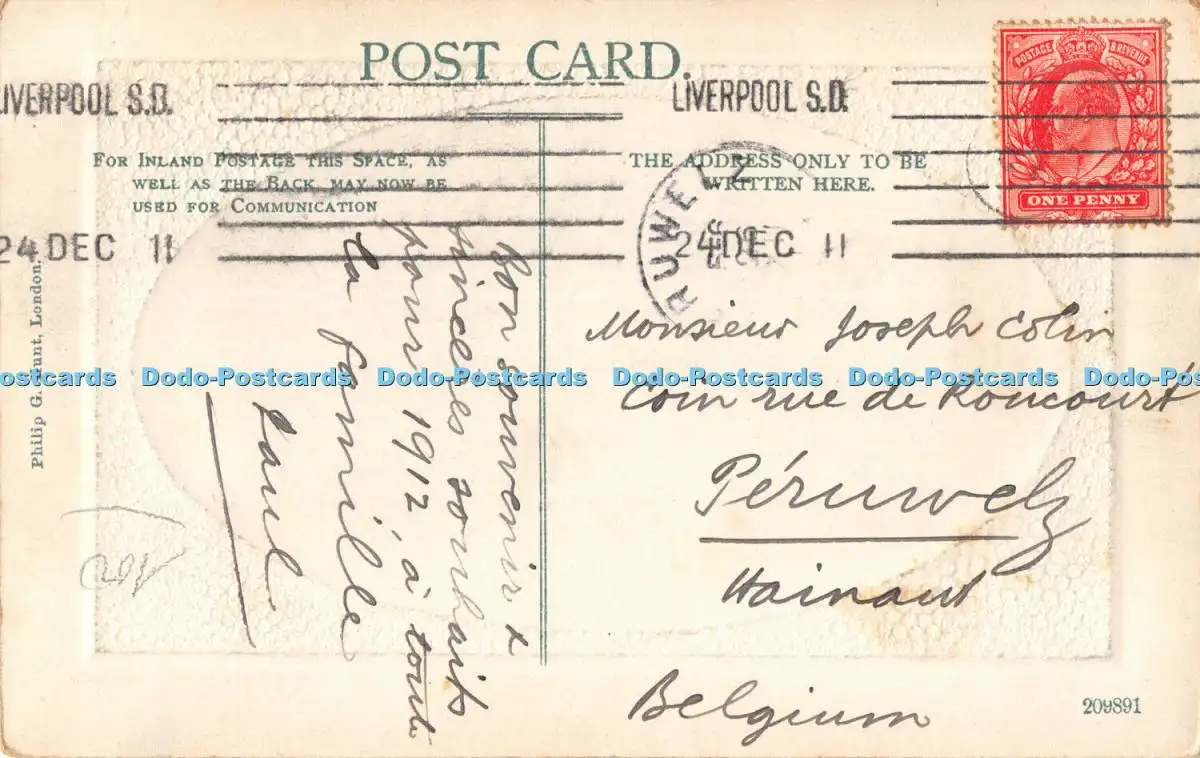 POST CARD.
LIVERPOOL S.D.
24 DEC 11
LIVERPOOL S.D.
24 DEC 11
POSTAGE & REVENUE
ONE PENNY
FOR INLAND POSTAGE THIS SPACE, AS
WELL AS THE BACK MAY NOW BE
USED FOR COMMUNICATION
THE ADDRESS ONLY TO BE
WRITTEN HERE.
RUWELZ
Bon souvenir &
sincères souhaits
pour 1912, à toute
la famille
Paul
Monsieur Joseph Colin
Coin rue de Roucourt
Péruwelz
Hainaut
Belgium
Philip G. Hunt, London.
209891
ostcards Dodo-Postcards Dodo-Postcards Dodo-Postcards Dodo-Postcards Dodo-Posta